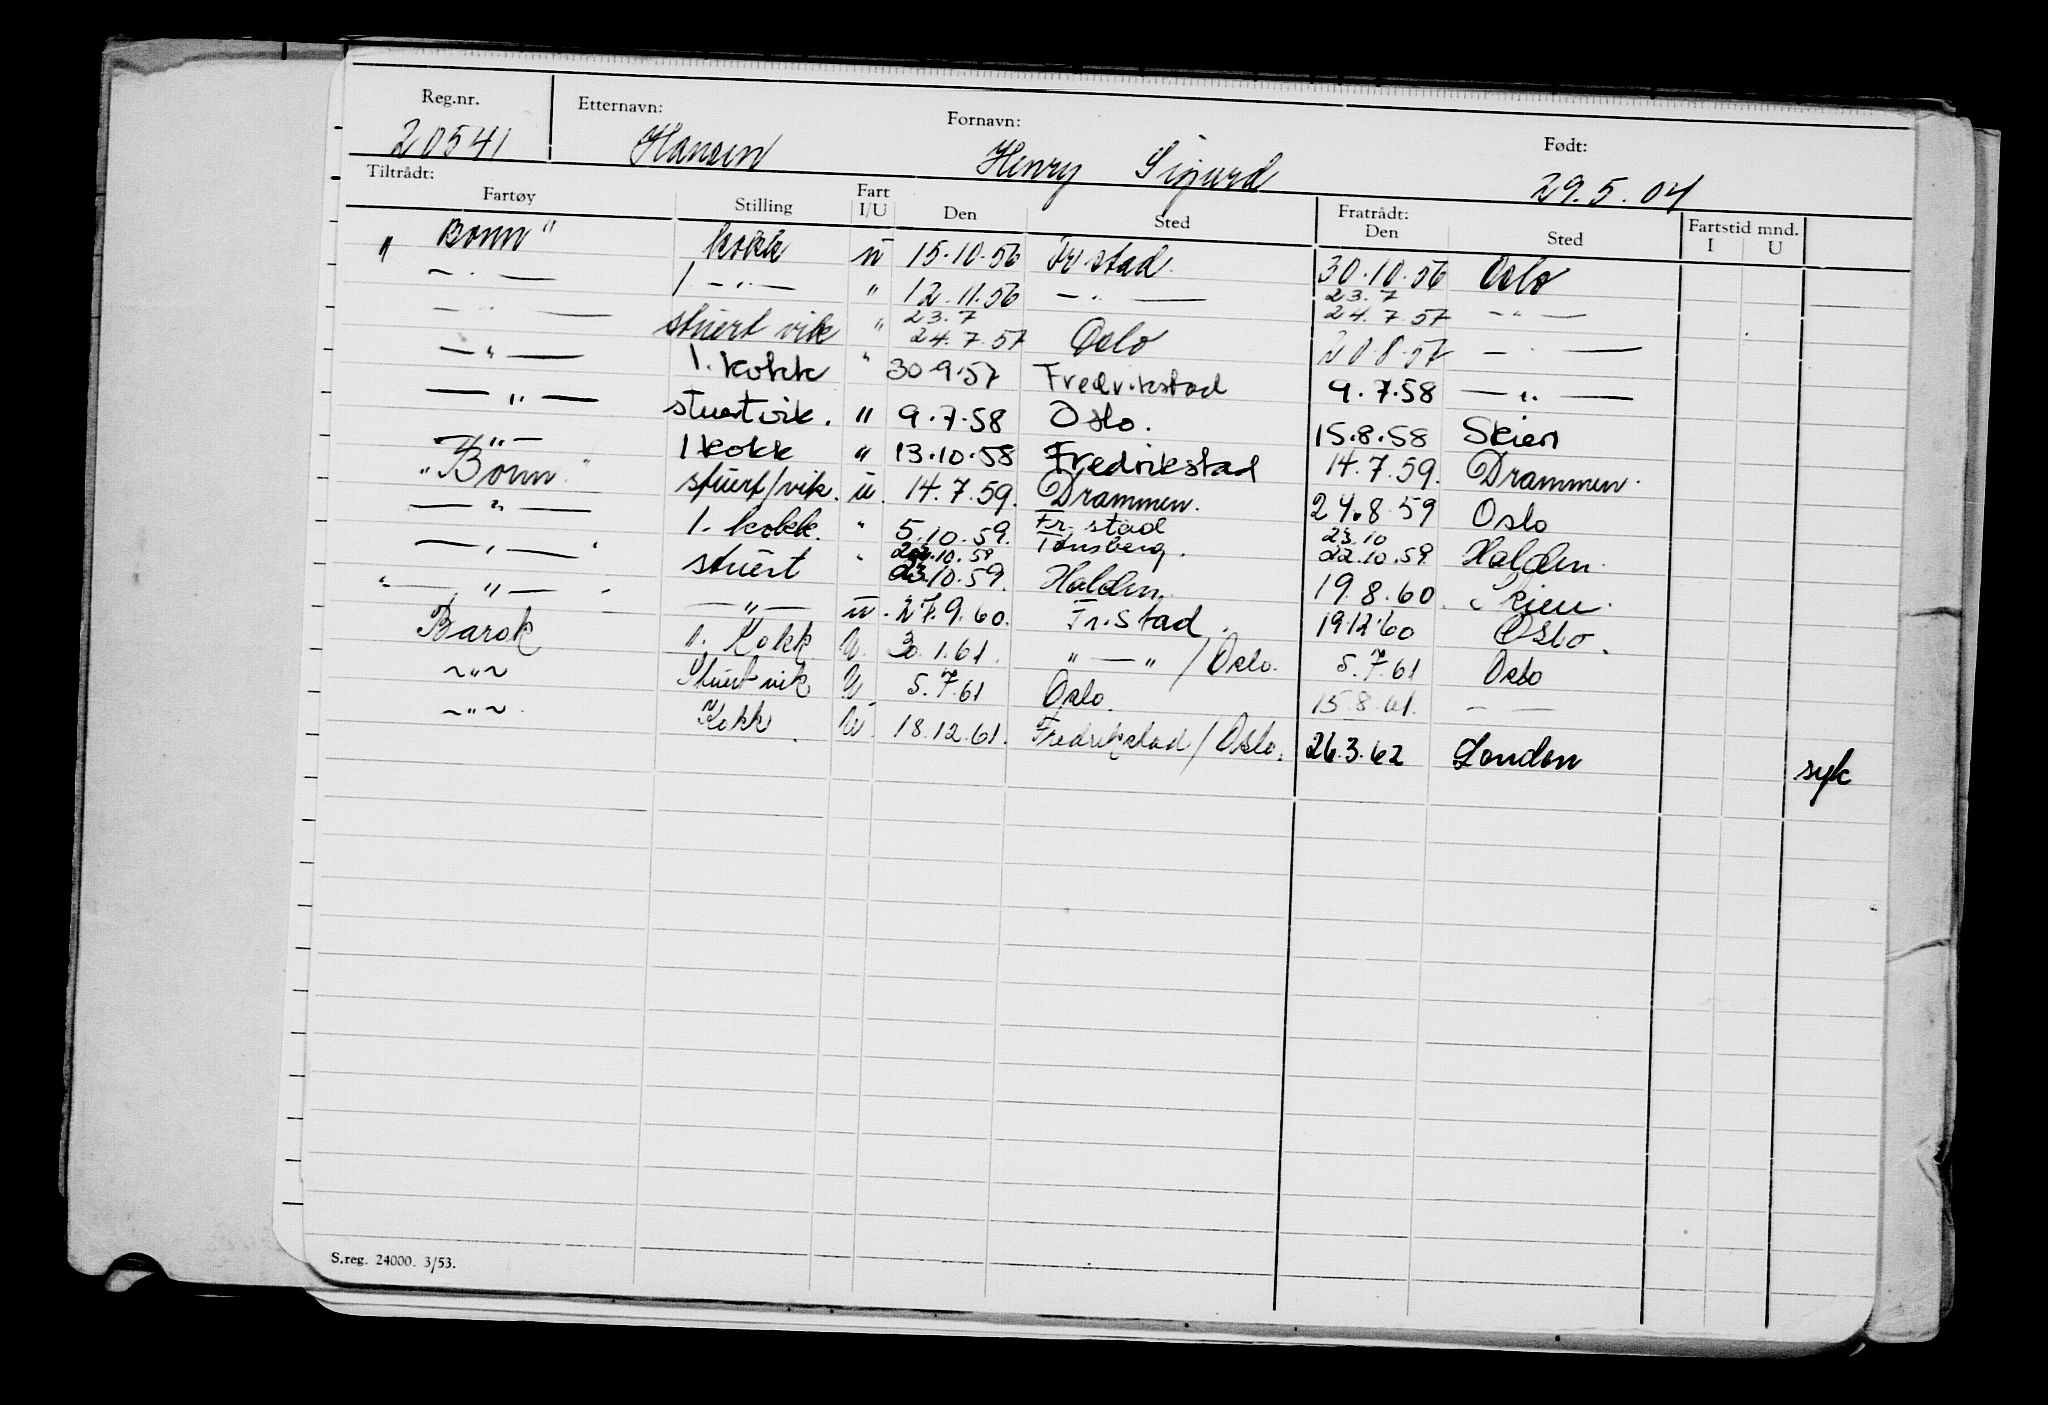 Reg.nr. Etternavn: Fornavn: Født:
20541 Hansen Henry Sigurd 29.5.04
Tiltrådt: Fratrådt:
Fartøy Stilling Fart I/U Den Sted Den Sted Fartstid mnd. I U
"Bonn" kokk u 15.10.56 Fr.stad. 30.10.56 Oslo
— " — 1. — " — " 12.11.56 — " — 23.7 24.7.57 — " —
— " — stuert vik " 23.7 24.7.57 Oslo 20.8.57 — " —
— " — 1. kokk " 30.9.57 Fredrikstad 9.7.58 — " —
— " — stuertvik. " 9.7.58 Oslo. 15.8.58 Skien
— " — 1 kokk " 13.10.58 Fredrikstad 14.7.59. Drammen.
"Bonn" stuert/vik. u. 14.7.59. Drammen. 24.8.59 Oslo
— " — 1. kokk. " 5.10.59. Fr.stad 23.10 22.10.59 Halden.
— " — stuert " 22.10.59 Tønsberg.
23.10.59. Halden. 19.8.60. Skien.
" — " — — " — u. 27.9.60. Fr.Stad. 19.12.60 Oslo.
Barok 1. Kokk U. 30.1.61. " — " / Oslo. 5.7.61 Oslo
~ " ~ Stuert vik U 5.7.61 Oslo. 15.8.61. — —
~ " ~ Kokk. U. 18.12.61. Fredrikstad / Oslo. 26.3.62 London syk
S.reg. 24000. 3/53.